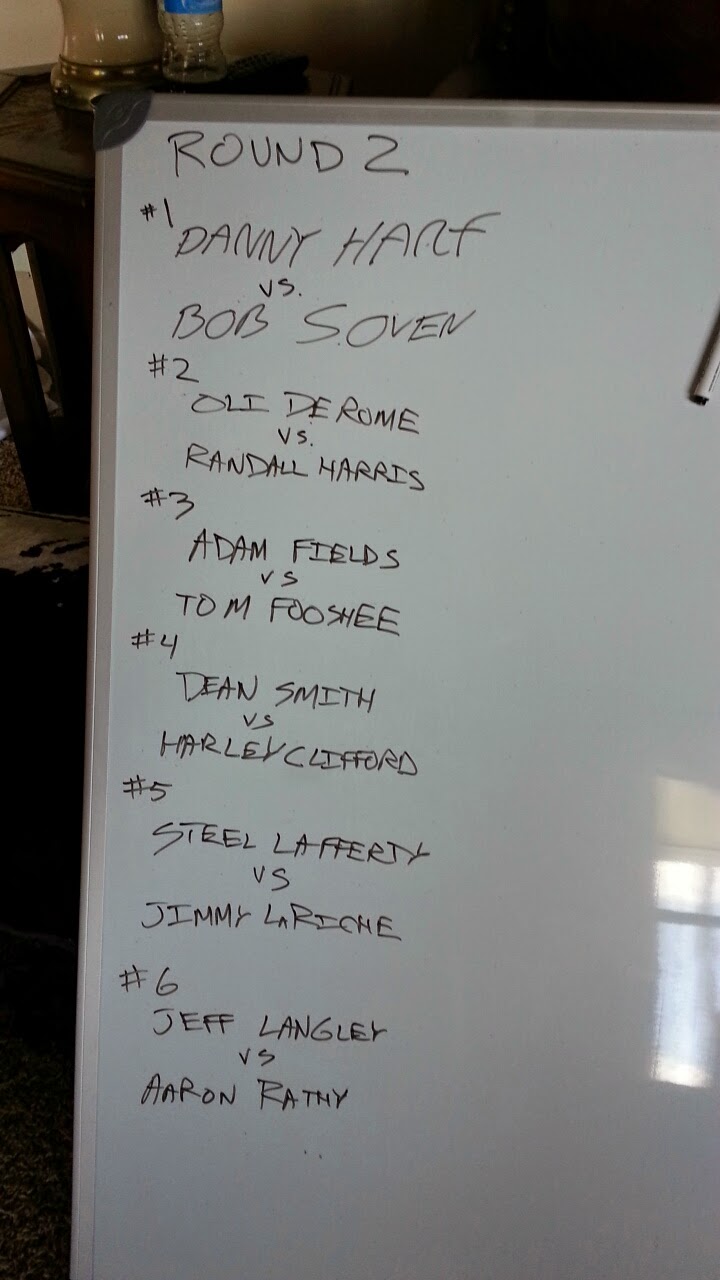 ROUND 2
#1
DANNY HARF
VS.
BOB SOVEN
#2
OLI DEROME
VS.
RANDALL HARRIS
#3
ADAM FIELDS
VS
TOM FOOSHEE
#4
DEAN SMITH
VS
HARLEY CLIFFORD
#5
STEEL LAFFERTY
VS
JIMMY LARICHE
#6
JEFF LANGLEY
VS
AARON RATHY